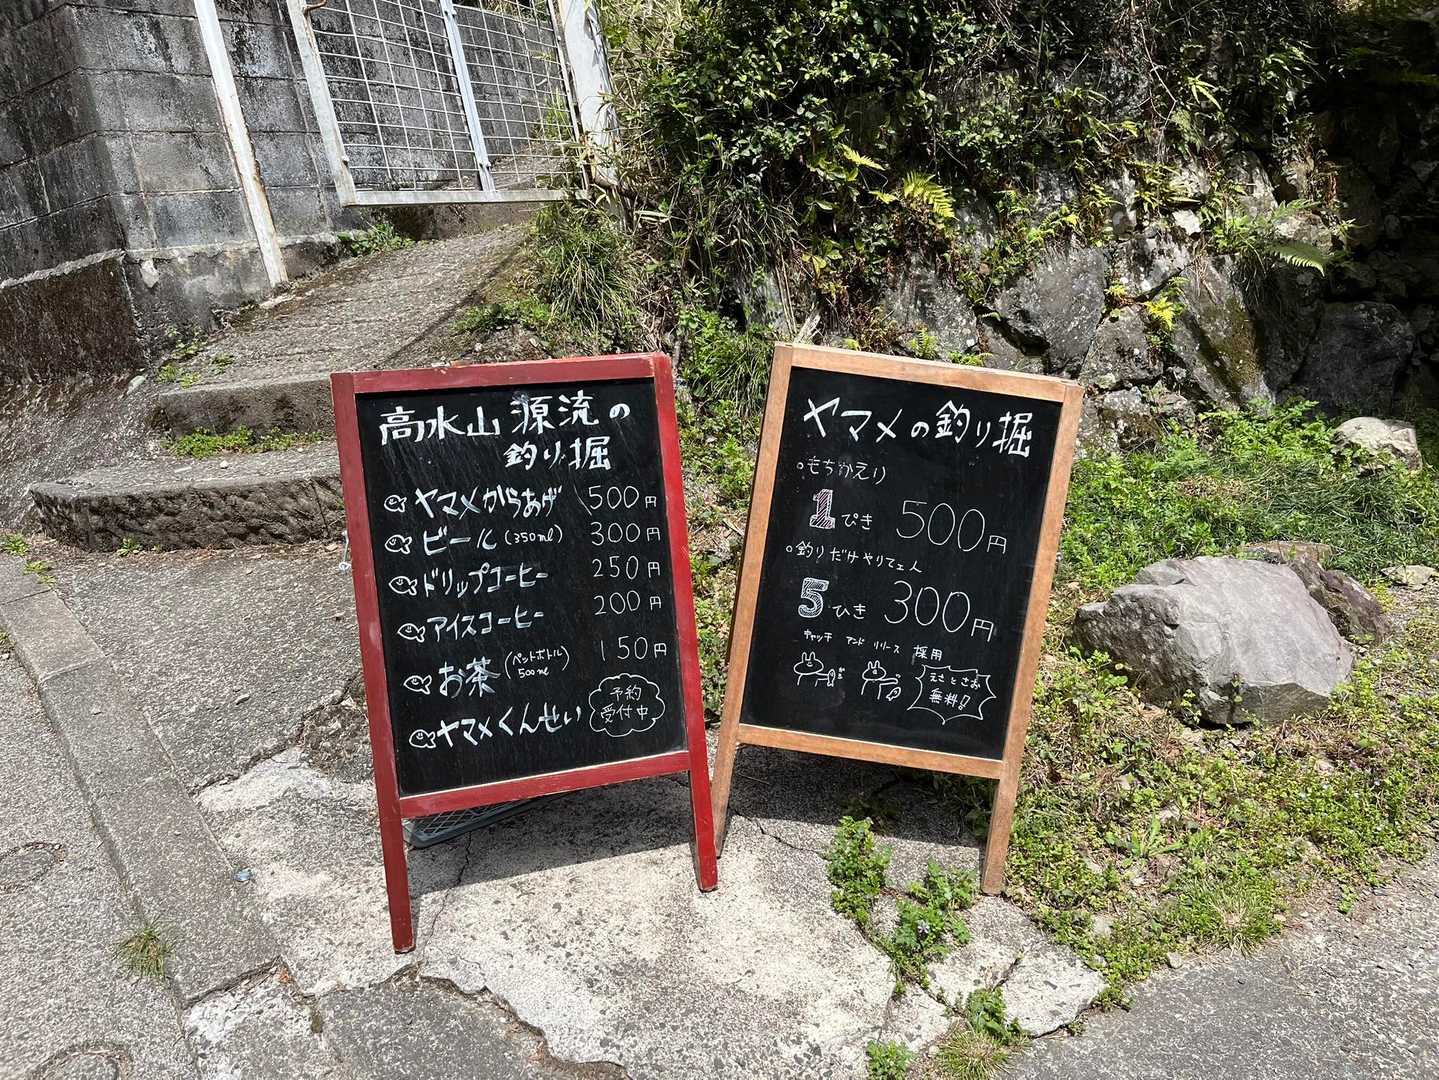 高水山 源流の
釣り掘
ヤマメからあげ 500円
ビール(350ml) 300円
ドリップコーヒー 250円
アイスコーヒー 200円
お茶(ペットボトル 500ml) 150円
ヤマメくんせい 予約受付中
ヤマメの釣り掘
もちかえり
1ぴき 500円
釣りだけやりてェ人
5ひき 300円
キャッチ アンド リリース 採用
えさとさお
無料!!